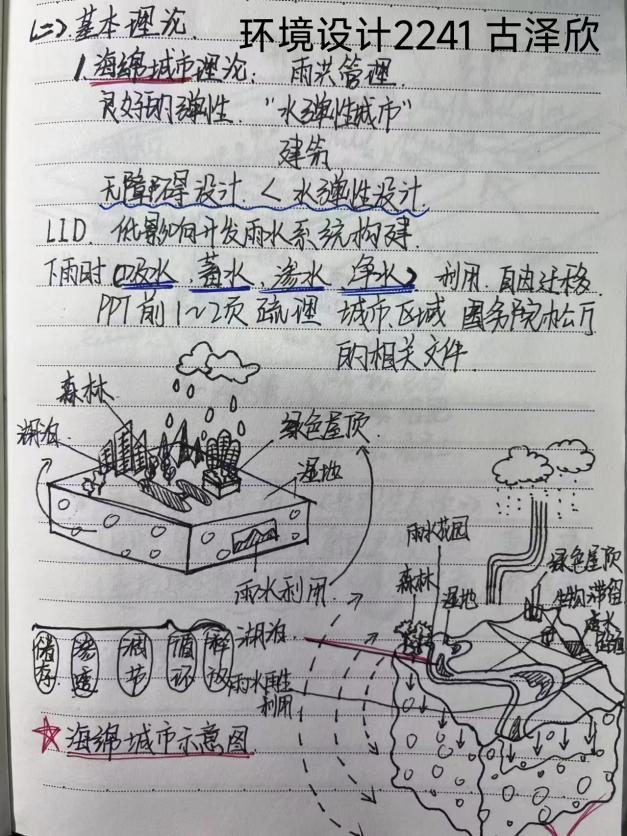 环境设计2241 古泽欣
(二).基本理论.
1.海绵城市理论: 雨洪管理.
良好的弹性. "水弹性城市"
建筑
无障碍设计. < 水弹性设计.
LID. 低影响开发雨水系统构建.
下雨时(吸水、蓄水、渗水、净水) 利用.自由迁移.
PPT前1~2页 疏理 城市.区域 国务院办公厅
的相关文件.
森林
湖泊.
绿色屋顶.
湿地
雨水利用.
雨水花园
绿色屋顶
森林
湿地
生物滞留
透水
储存
渗透
调节
循环
释放
湖泊
雨水再生
利用
海绵城市示意图.